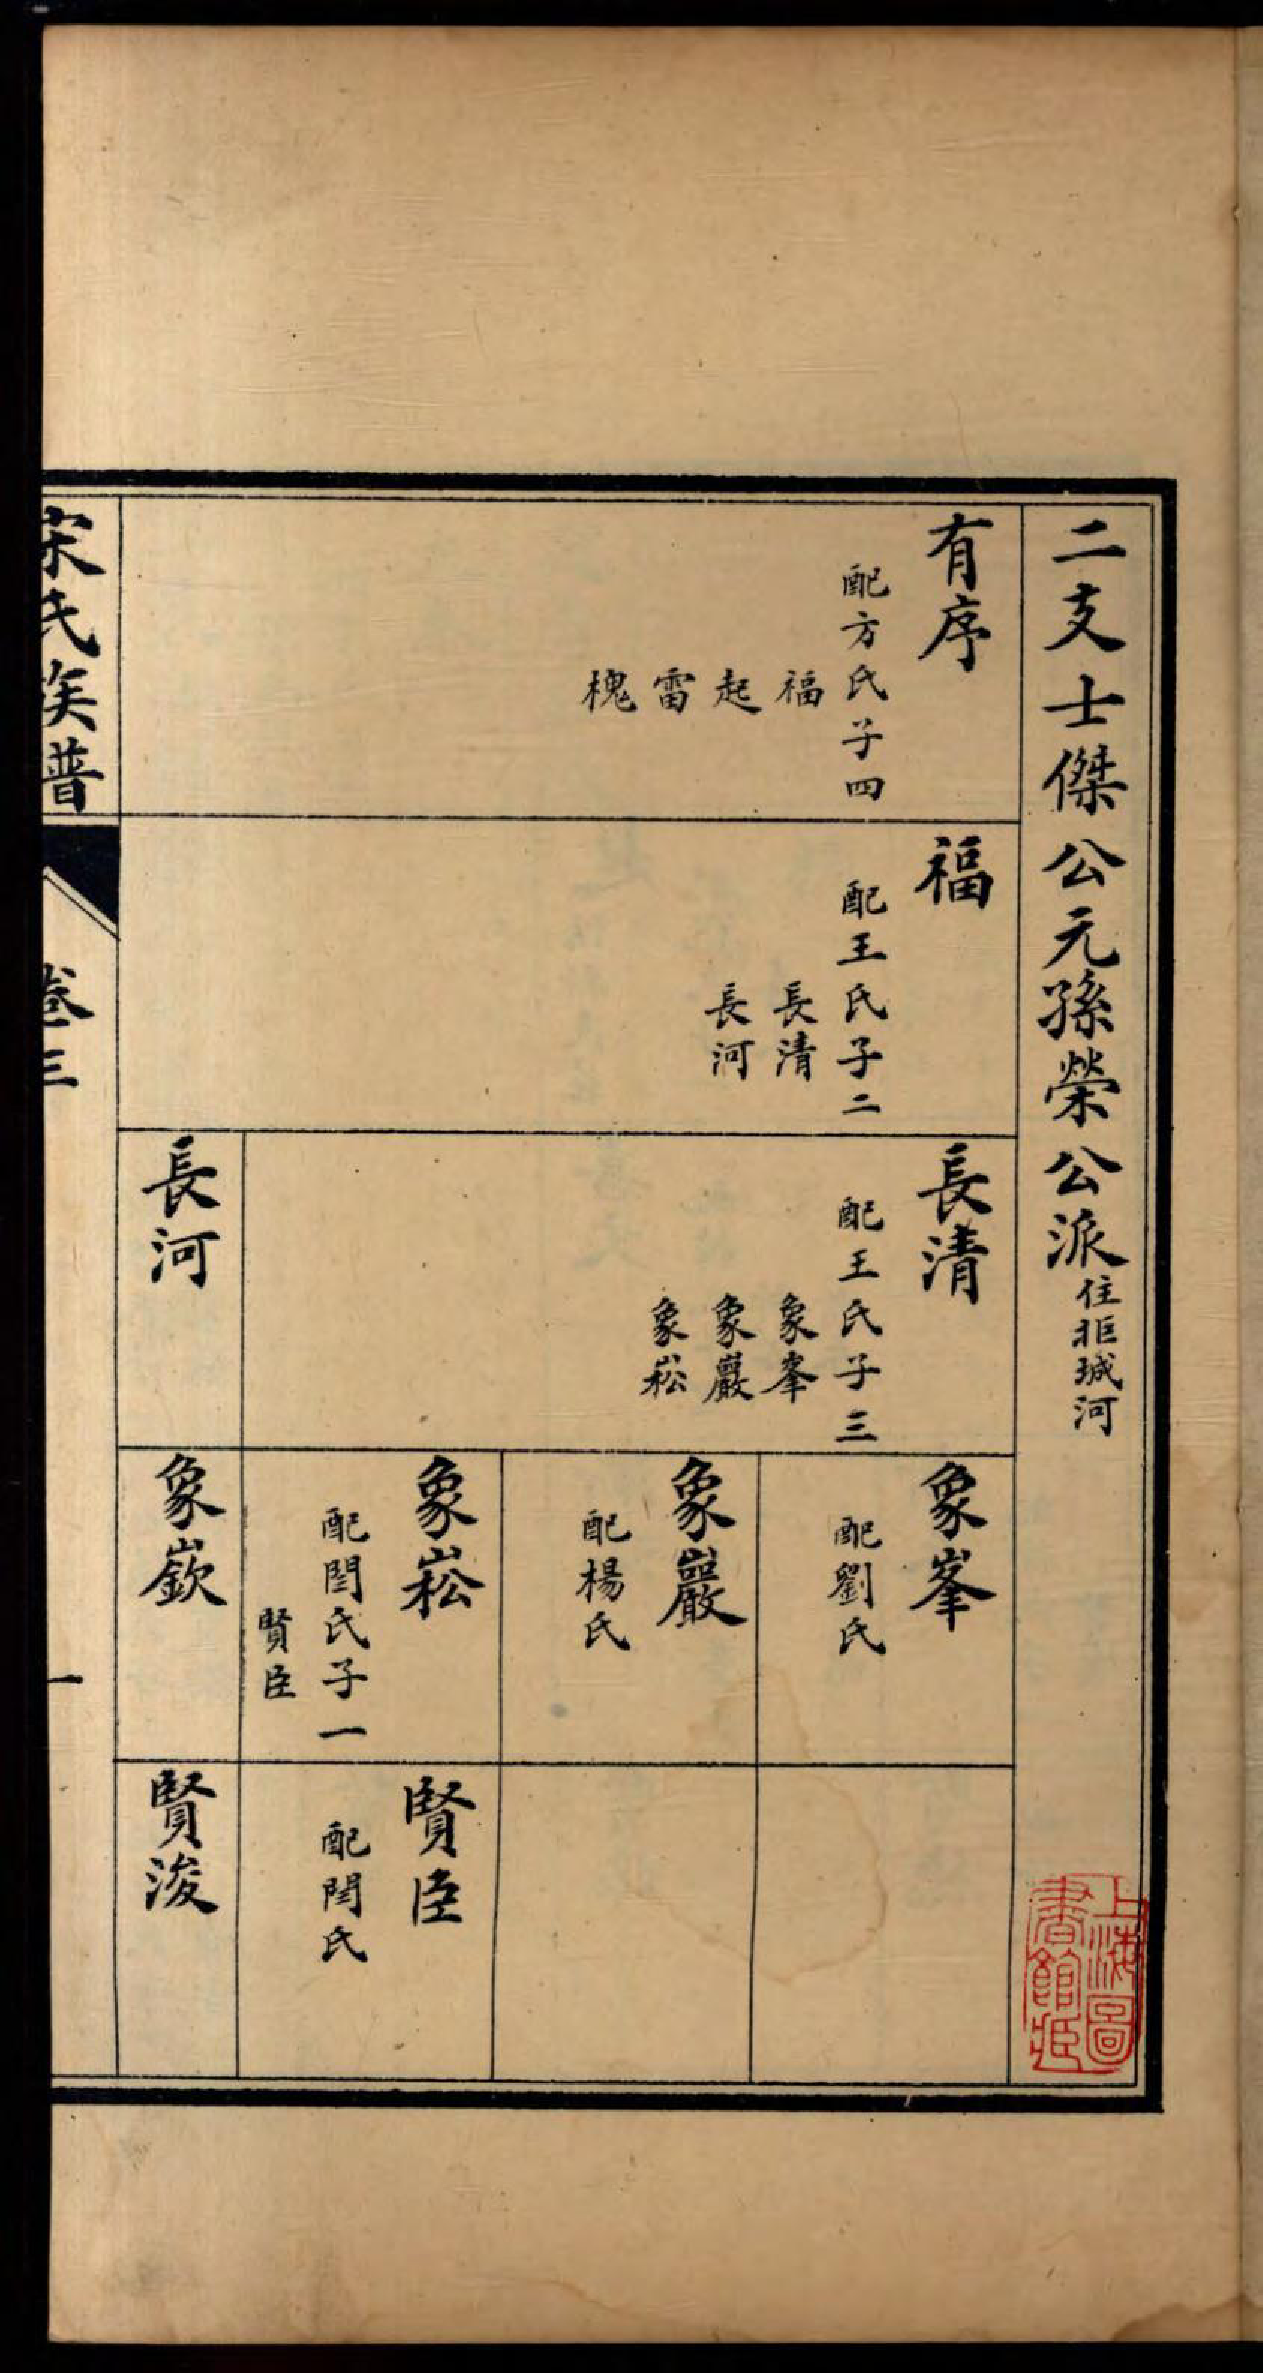 二支士傑公元孫榮公派住非珹河
有序
配方氏子四
福
起
雷
槐
福
配王氏子二
長清
長河
長清
配王氏子三
象峯
象巖
象崧
長河
象峯
配劉氏
象巖
配楊氏
象崧
配閆氏子一
賢臣
象嶔
賢臣
配閆氏
賢浚
宋氏族譜
卷三
一
上海圖
書館藏